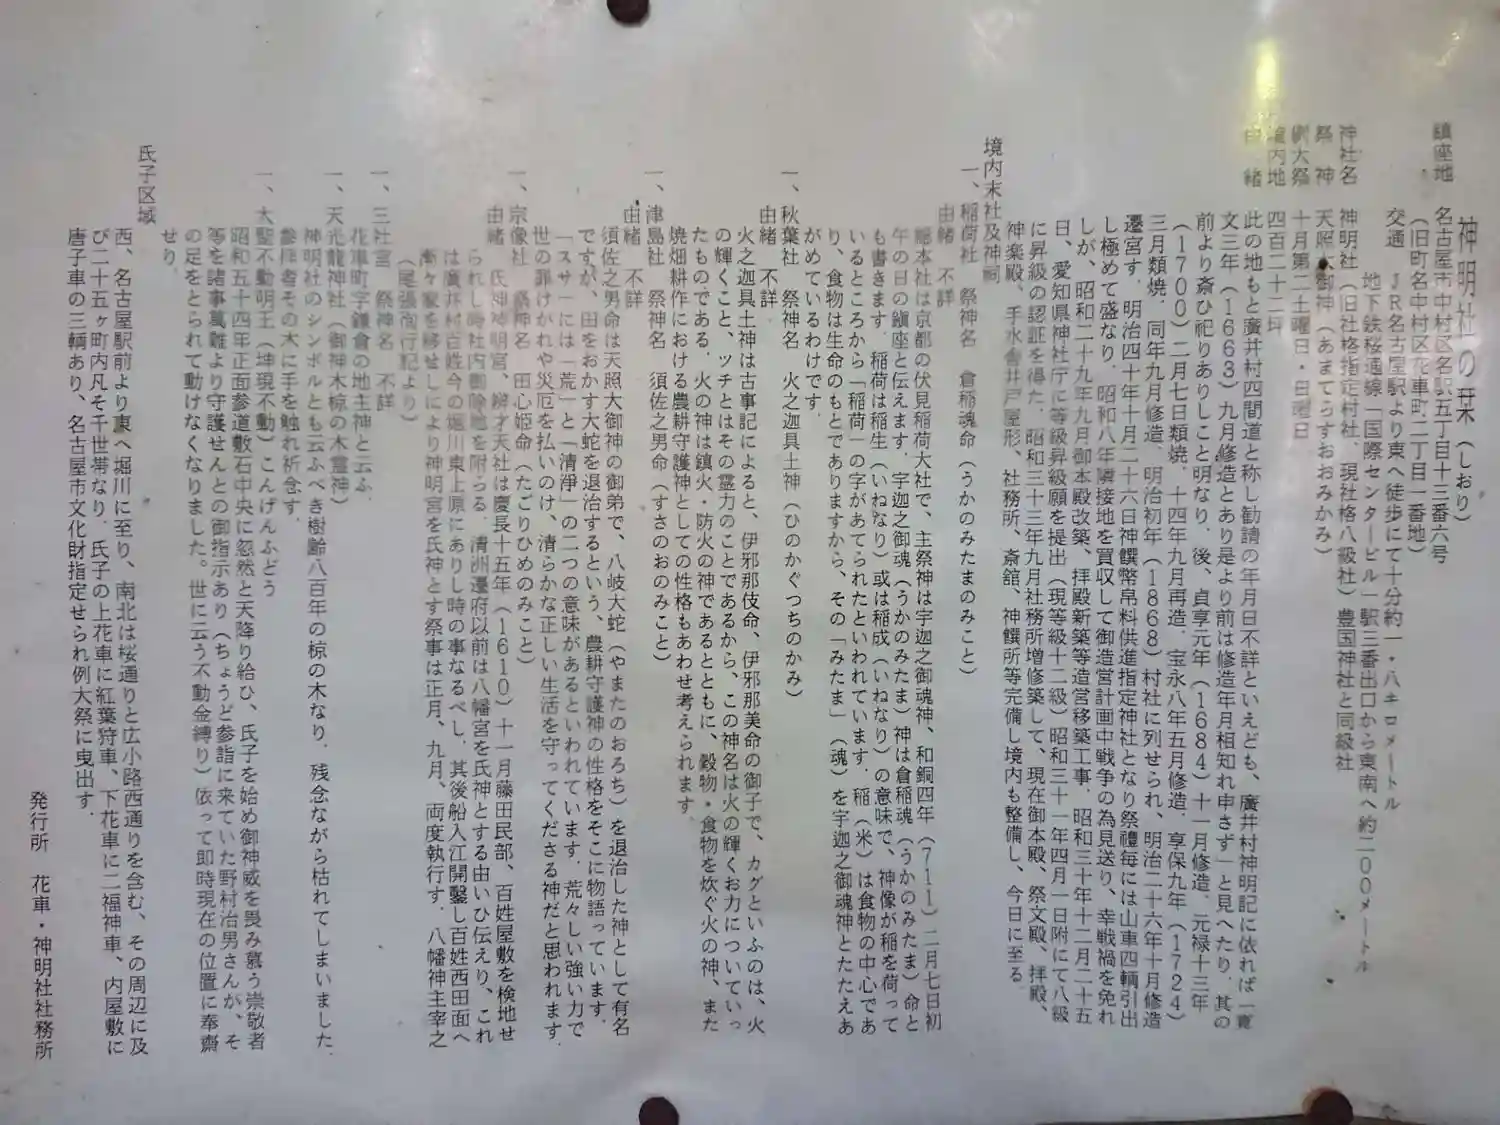 神明社の栞（しおり）
鎮座地　名古屋市中村区名駅五丁目十三番六号
（旧町名中村区花車町二丁目一番地）
交通　ＪＲ名古屋駅より東へ徒歩にて十分約一・八キロメートル
地下鉄桜通線「国際センタービル」駅三番出口から東南へ約二００メートル
神社名　神明社（旧社格指定村社、現社格八級社）豊国神社と同級社
祭　神　天照大御神（あまてらすおおみかみ）
例大祭　十月第二土曜日・日曜日
境内地　四百二十二坪
由　緒　此の地もと廣井村四間道と称し勧請の年月日不詳といえども、廣井村神明記に依れば「寛
文三年（１６６３）九月修造とあり是より前は修造年月相知れ申さず」と見へたり．其の
前より斎ひ祀りありしこと明なり．後、貞享元年（１６８４）十一月修造．元禄十三年
（１７００）二月七日類焼．十四年九月再造．宝永八年五月修造．享保九年（１７２４）
三月類焼．同年九月修造．明治初年（１８６８）村社に列せられ、明治二十六年十月修造
遷宮す．明治四十年十月二十六日神饌幣帛料供進指定神社となり祭禮毎には山車四輌引出
し極めて盛なり．昭和八年隣接地を買収して御造営計画中戦争の為見送り、幸戦禍を免れ
しが、昭和二十九年九月御本殿改築、拝殿新築等造営移築工事．昭和三十年十二月二十五
日、愛知県神社庁に等級昇級願を提出（現等級十二級）昭和三十一年四月一日附にて八級
に昇級の認証を得た．昭和三十三年九月社務所増修築して、現在御本殿、祭文殿、拝殿、
神楽殿、手水舎井戸屋形、社務所、斎舘、神饌所等完備し境内も整備し、今日に至る．
境内末社及神祠
一、稲荷社　祭神名　倉稲魂命（うかのみたまのみこと）
由緒　不詳
総本社は京都の伏見稲荷大社で、主祭神は宇迦之御魂神、和銅四年（７１１）二月七日初
午の日の鎮座と伝えます．宇迦之御魂（うかのみたま）神は倉稲魂（うかのみたま）命と
も書きます．稲荷は稲生（いねなり）或は稲成（いねなり）の意味で、神像が稲を荷って
いるところから「稲荷」の字があてられたといわれています．稲（米）は食物の中心であ
り、食物は生命のもとでありますから、その「みたま」（魂）を宇迦之御魂神とたたえあ
がめているわけです．
一、秋葉社　祭神名　火之迦具土神（ひのかぐつちのかみ）
由緒　不詳
火之迦具土神は古事記によると、伊邪那伎命、伊邪那美命の御子で、カグといふのは、火
の輝くこと、ツチとはその霊力のことであるから、この神名は火の輝くお力についていっ
たものである．火の神は鎮火・防火の神であるとともに、穀物・食物を炊ぐ火の神、また
焼畑耕作における農耕守護神としての性格もあわせ考えられます．
一、津島社　祭神名　須佐之男命（すさのおのみこと）
由緒　不詳
須佐之男命は天照大御神の御弟で、八岐大蛇（やまたのおろち）を退治した神として有名
ですが、田をおかす大蛇を退治するという、農耕守護神の性格をそこに物語っています．
「スサ」には「荒」と「清淨」の二つの意味があるといわれています．荒々しい強い力で
世の罪けがれや災厄を払いのけ、清らかな正しい生活を守ってくださる神だと思われます．
一、宗像社　祭神名　田心姫命（たごりひめのみこと）
由緒　氏神神明宮、辨才天社は慶長十五年（１６１０）十一月藤田民部、百姓屋敷を検地せ
られし時社内御除地を附らる．清洲遷府以前は八幡宮を氏神とする由いひ伝えり、これ
は廣井村百姓今の堀川東上原にありし時の事なるべし．其後船入江開鑿し百姓西田面へ
漸々家を移せしにより神明宮を氏神とす祭事は正月、九月、両度執行す．八幡神主宰之
（尾張徇行記より）
一、三社宮　祭神名　不詳
花車町字鎌倉の地主神と云ふ．
一、天光龍神社（御神木椋の木霊神）
神明社のシンボルとも云ふべき樹齢八百年の椋の木なり．残念ながら枯れてしまいました．
参拝者その木に手を触れ祈念す．
一、大聖不動明王（坤現不動）こんげんふどう
昭和五十四年正面参道敷石中央に忽然と天降り給ひ、氏子を始め御神威を畏み慕う崇敬者
等を諸事萬難より守護せんとの御指示あり（ちょうど参詣に来ていた野村治男さんが、そ
の足をとられて動けなくなりました。世に云う不動金縛り）依って即時現在の位置に奉齋
せり．
氏子区域
西、名古屋駅前より東へ堀川に至り、南北は桜通りと広小路西通りを含む、その周辺に及
び二十五ヶ町内凡そ千世帯なり．氏子の上花車に紅葉狩車、下花車に二福神車、内屋敷に
唐子車の三輌あり、名古屋市文化財指定せられ例大祭に曳出す．
発行所　花車・神明社社務所